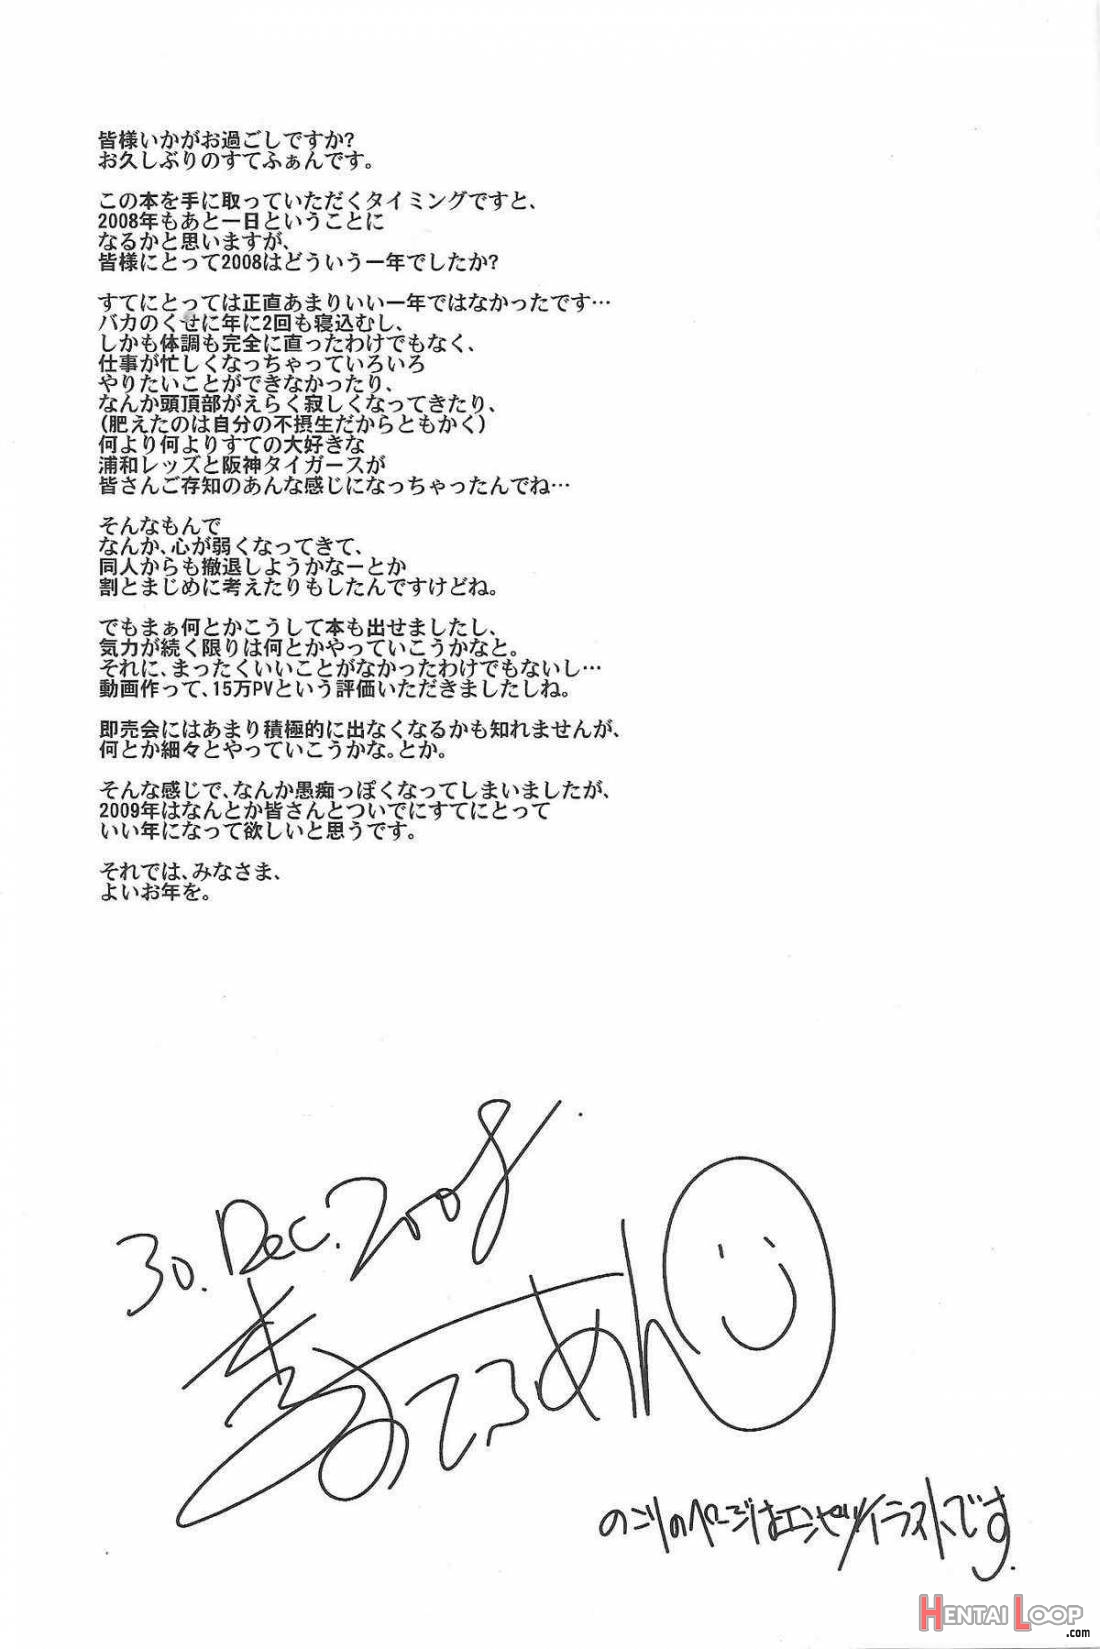 皆様いかがお過ごしですか?
お久しぶりのすてふぁんです。
この本を手に取っていただくタイミングですと、
2008年もあと一日ということに
なるかと思いますが、
皆様にとって2008はどういう一年でしたか?
すてにとっては正直あまりいい一年ではなかったです…
バカのくせに年に2回も寝込むし、
しかも体調も完全に直ったわけでもなく、
仕事が忙しくなっちゃっていろいろ
やりたいことができなかったり、
なんか頭頂部がえらく寂しくなってきたり、
(肥えたのは自分の不摂生だからともかく)
何より何よりすての大好きな
浦和レッズと阪神タイガースが
皆さんご存知のあんな感じになっちゃったんでね…
そんなもんで
なんか、心が弱くなってきて、
同人からも撤退しようかなーとか
割とまじめに考えたりもしたんですけどね。
でもまぁ何とかこうして本も出せましたし、
気力が続く限りは何とかやっていこうかなと。
それに、まったくいいことがなかったわけでもないし…
動画作って、15万PVという評価いただきましたしね。
即売会にはあまり積極的に出なくなるかも知れませんが、
何とか細々とやっていこうかな。とか。
そんな感じで、なんか愚痴っぽくなってしまいましたが、
2009年はなんとか皆さんとついでにすてにとって
いい年になって欲しいと思うです。
それでは、みなさま、
よいお年を。
30. Dec. 2008.
すてふぁん
のこりのページはエンピツイラストです.
HENTAI LOOP
.com